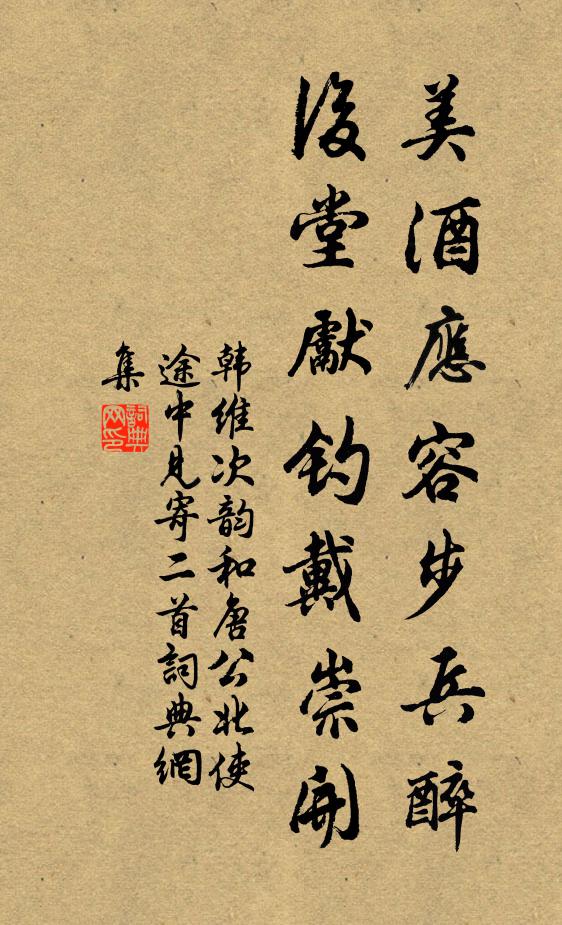 美酒應容步兵醉
後堂獻钓戴崇開
韩維次韵和唐公北使
途中見寄二首詞典網
集
詞典
网印